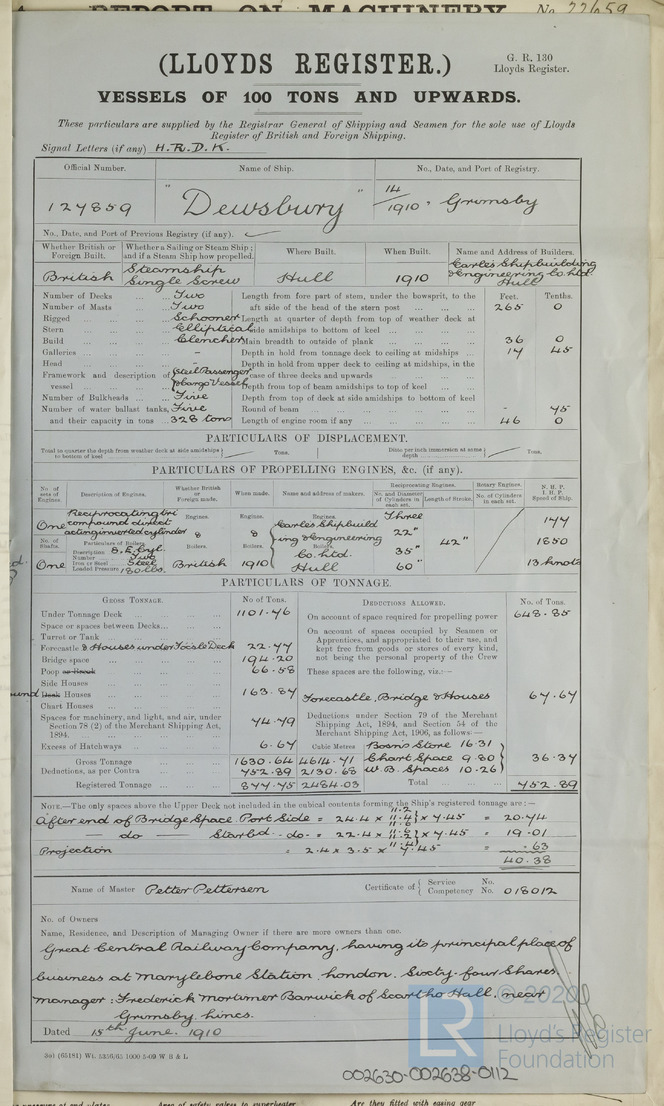 REPORT ON MACHINERY No. 22659
(LLOYDS REGISTER.)
G. R. 130
Lloyds Register.
VESSELS OF 100 TONS AND UPWARDS.
These particulars are supplied by the Registrar General of Shipping and Seamen for the sole use of Lloyds
Register of British and Foreign Shipping.
Signal Letters (if any) H.R.D.K.
Official Number. Name of Ship. No., Date, and Port of Registry.
127859 "Dewsbury" 14/1910, Grimsby
No., Date, and Port of Previous Registry (if any).
Whether British or Foreign Built. Whether a Sailing or Steam Ship; and if a Steam Ship how propelled. Where Built. When Built. Name and Address of Builders.
British Steamship Single Screw Hull 1910 Earle's Shipbuilding & Engineering Co. Ltd. Hull
Number of Decks Two Length from fore part of stem, under the bowsprit, to the Feet. Tenths.
Number of Masts Two aft side of the head of the stern post 265 0
Rigged Schooner Length at quarter of depth from top of weather deck at
Stern Elliptical side amidships to bottom of keel
Build Clencher Main breadth to outside of plank 36 0
Galleries - Depth in hold from tonnage deck to ceiling at midships 14 45
Head - Depth in hold from upper deck to ceiling at midships, in the
Framework and description of vessel Steel Passenger & Cargo Vessel case of three decks and upwards
Depth from top of beam amidships to top of keel
Number of Bulkheads Five Depth from top of deck at side amidships to bottom of keel
Number of water ballast tanks, Five Round of beam - 45
and their capacity in tons 328 tons Length of engine room if any 46 0
PARTICULARS OF DISPLACEMENT.
Total to quarter the depth from weather deck at side amidships to bottom of keel Tons. Ditto per inch immersion at same depth Tons.
PARTICULARS OF PROPELLING ENGINES, &c. (if any).
No. of sets of Engines. Description of Engines. Whether British or Foreign made. When made. Name and address of makers. Reciprocating Engines. Rotary Engines. N. H. P.
No. and Diameter of Cylinders in each set. Length of Stroke. No. of Cylinders in each set. I. H. P. Speed of Ship.
One Reciprocating tri compound direct acting inverted cylinder Engines. Engines. Engines. Earle's Shipbuilding & Engineering Co. Ltd. Hull Three 22" 35" 60" 42" 144 1850 13 knots
No. of Shafts. Particulars of Boilers. Boilers. Boilers. Boilers.
One Description S.E. Cyl. Number Two Iron or Steel Steel Loaded Pressure 180 lbs. British 1910
PARTICULARS OF TONNAGE.
GROSS TONNAGE. No of Tons. DEDUCTIONS ALLOWED. No. of Tons.
Under Tonnage Deck 1101.46 On account of space required for propelling power 648.85
Space or spaces between Decks On account of spaces occupied by Seamen or
Turret or Tank Apprentices, and appropriated to their use, and
Forecastle & Houses under Focsle Deck 22.44 kept free from goods or stores of every kind,
Bridge space 194.20 not being the personal property of the Crew
Poop or Break 66.58 These spaces are the following, viz.:—
Side Houses
Deck Houses 163.84 Forecastle, Bridge & Houses 67.67
Chart Houses
Spaces for machinery, and light, and air, under Section 78 (2) of the Merchant Shipping Act, 1894. 74.79 Deductions under Section 79 of the Merchant Shipping Act, 1894, and Section 54 of the Merchant Shipping Act, 1906, as follows:—
Excess of Hatchways 6.67 Cubic Metres Bosn's Store 16.31
Gross Tonnage 1630.64 4614.71 Chart Space 9.80 36.37
Deductions, as per Contra 752.89 2130.68 W.B. Spaces 10.26
Registered Tonnage 877.75 2484.03 Total 752.89
NOTE.—The only spaces above the Upper Deck not included in the cubical contents forming the Ship's registered tonnage are:—
After end of Bridge Space Port Side = 24.4 × 11.4 × 7.45 = 20.74
— do — Starbd - do - = 22.4 × 7.45 = 19.01
Projection = 2.4 × 3.5 × 7.45 = .63
40.38
Name of Master Petter Pettersen Certificate of Service Competency No. No. 018012
No. of Owners
Name, Residence, and Description of Managing Owner if there are more owners than one.
Great Central Railway Company, having its principal place of
business at Marylebone Station, London. Sixty-four Shares.
Manager: Frederick Mortimer Barwick of Scartho Hall, near
Grimsby Lincs.
Dated 15th June, 1910
© 2020
LR Lloyd's Register
Foundation
002630-002638-0112
Are they fitted with easing gear